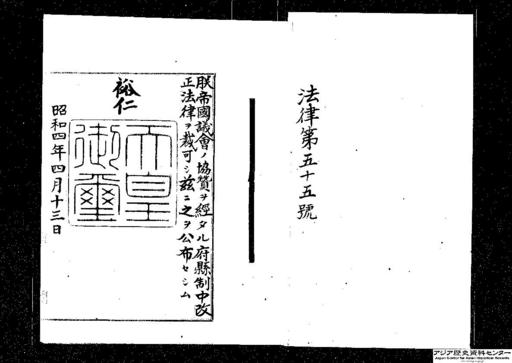 法律第五十五號
朕帝國議會ノ協贊ヲ經タル府縣制中改
正法律ヲ裁可シ茲ニ之ヲ公布セシム
裕仁
天皇
御璽
昭和四年四月十三日
アジア歴史資料センター
Japan Center for Asian Historical Records